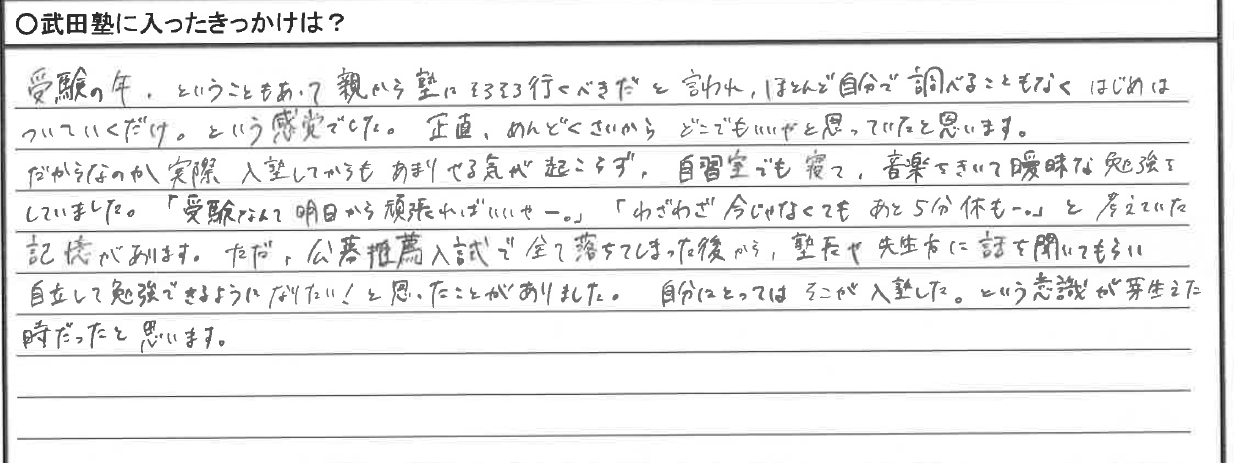 〇武田塾に入ったきっかけは？
受験の年、ということもあって親から塾にそろそろ行くべきだと言われ、ほとんど自分で調べることもなくはじめは
ついていくだけ。という感覚でした。正直、めんどくさいからどこでもいいやと思っていたと思います。
だからなのか実際入塾してからもあまりやる気が起こらず、自習室でも寝て、音楽をきいて曖昧な勉強を
していました。「受験なんて明日から頑張ればいいやー。」「わざわざ今じゃなくてもあと5分休もー。」と考えていた
記憶があります。ただ、公募推薦入試で全て落ちてしまった後から、塾長や先生方に話を聞いてもらい
自立して勉強できるようになりたい！と思ったことがありました。自分にとってはそこが入塾した。という意識が芽生えた
時だったと思います。